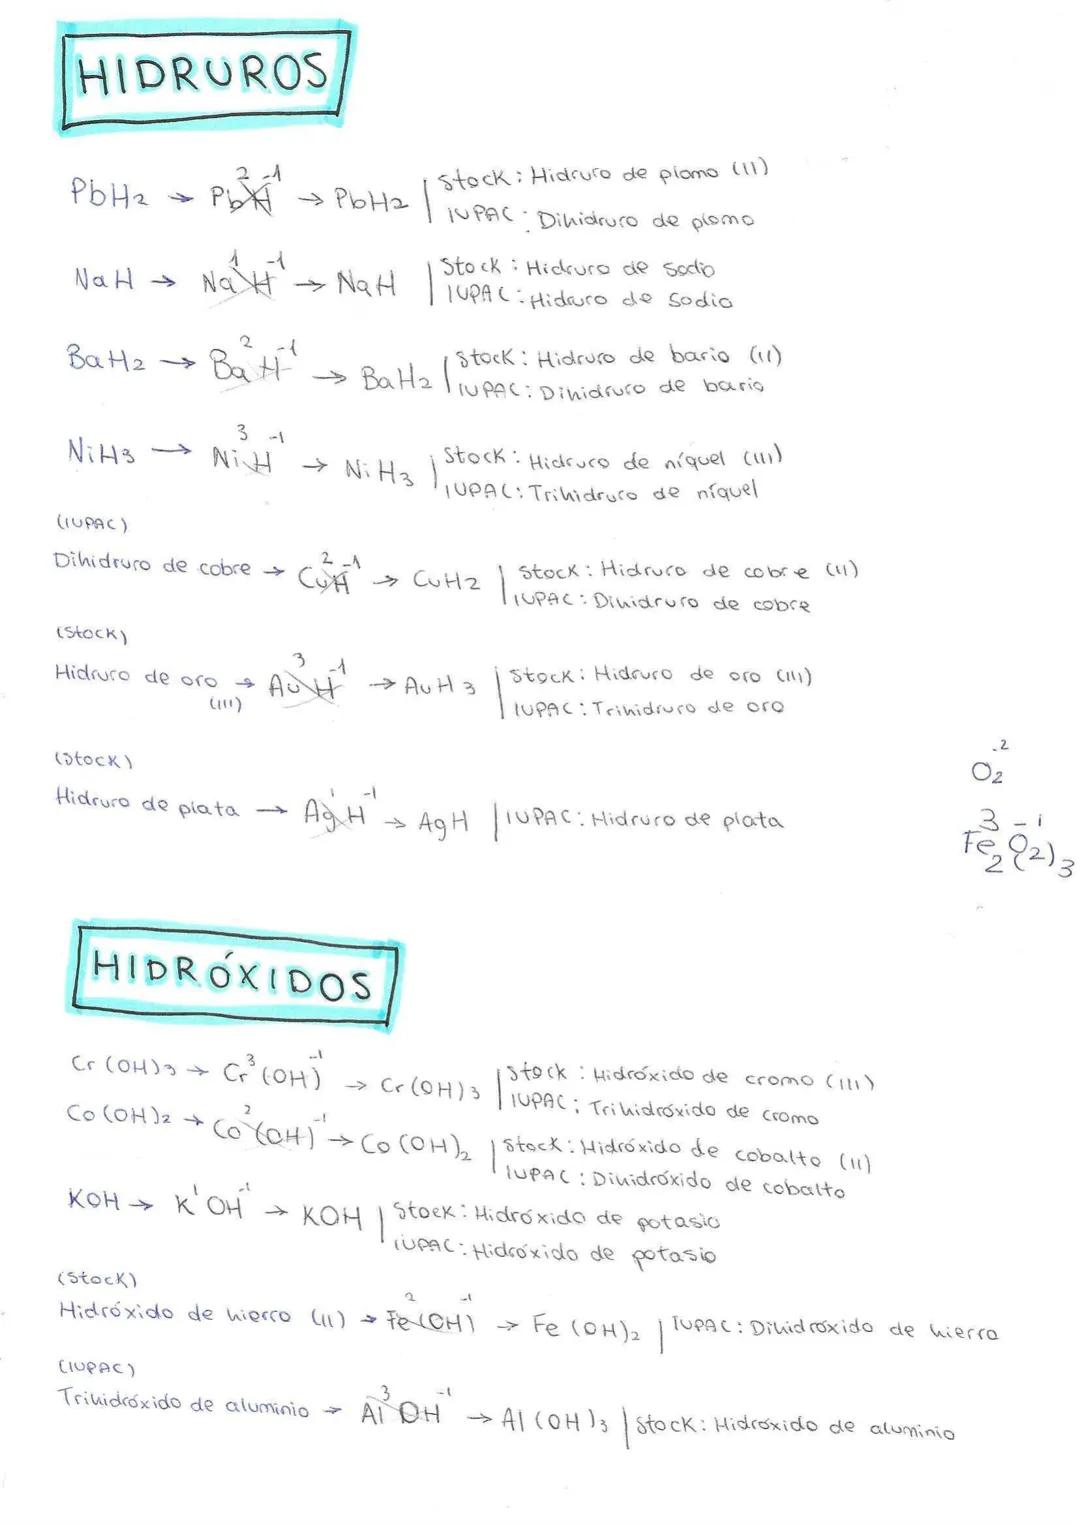 HIDRUROS
PbH2 → Pb² H⁻¹ → PbH2 | Stock: Hidruro de plomo (II)
IUPAC: Dihidruro de plomo
NaH → Na¹ H⁻¹ → NaH | Stock: Hidruro de sodio
IUPAC: Hidruro de sodio
BaH2 → Ba² H⁻¹ → BaH2 | Stock: Hidruro de bario (II)
IUPAC: Dihidruro de bario
NiH3 → Ni³ H⁻¹ → NiH3 | Stock: Hidruro de níquel (III)
IUPAC: Trihidruro de níquel
(IUPAC)
Dihidruro de cobre → Cu² H⁻¹ → CuH2 | Stock: Hidruro de cobre (II)
IUPAC: Dihidruro de cobre
(Stock)
Hidruro de oro → Au³ H⁻¹ → AuH3 | Stock: Hidruro de oro (III)
(III)
IUPAC: Trihidruro de oro
(Stock)
Hidruro de plata → Ag¹ H⁻¹ → AgH | IUPAC: Hidruro de plata
O2⁻²
Fe2³ (O2)3⁻¹
HIDRÓXIDOS
Cr(OH)3 → Cr³ (OH)⁻¹ → Cr(OH)3 | Stock: Hidróxido de cromo (III)
IUPAC: Trihidróxido de cromo
Co(OH)2 → Co² (OH)⁻¹ → Co(OH)2 | Stock: Hidróxido de cobalto (II)
IUPAC: Dihidróxido de cobalto
KOH → K¹ OH⁻¹ → KOH | Stock: Hidróxido de potasio
IUPAC: Hidróxido de potasio
(Stock)
Hidróxido de hierro (II) → Fe² (OH)⁻¹ → Fe(OH)2 | IUPAC: Dihidróxido de hierro
(IUPAC)
Trihidróxido de aluminio → Al³ OH⁻¹ → Al(OH)3 | Stock: Hidróxido de aluminio